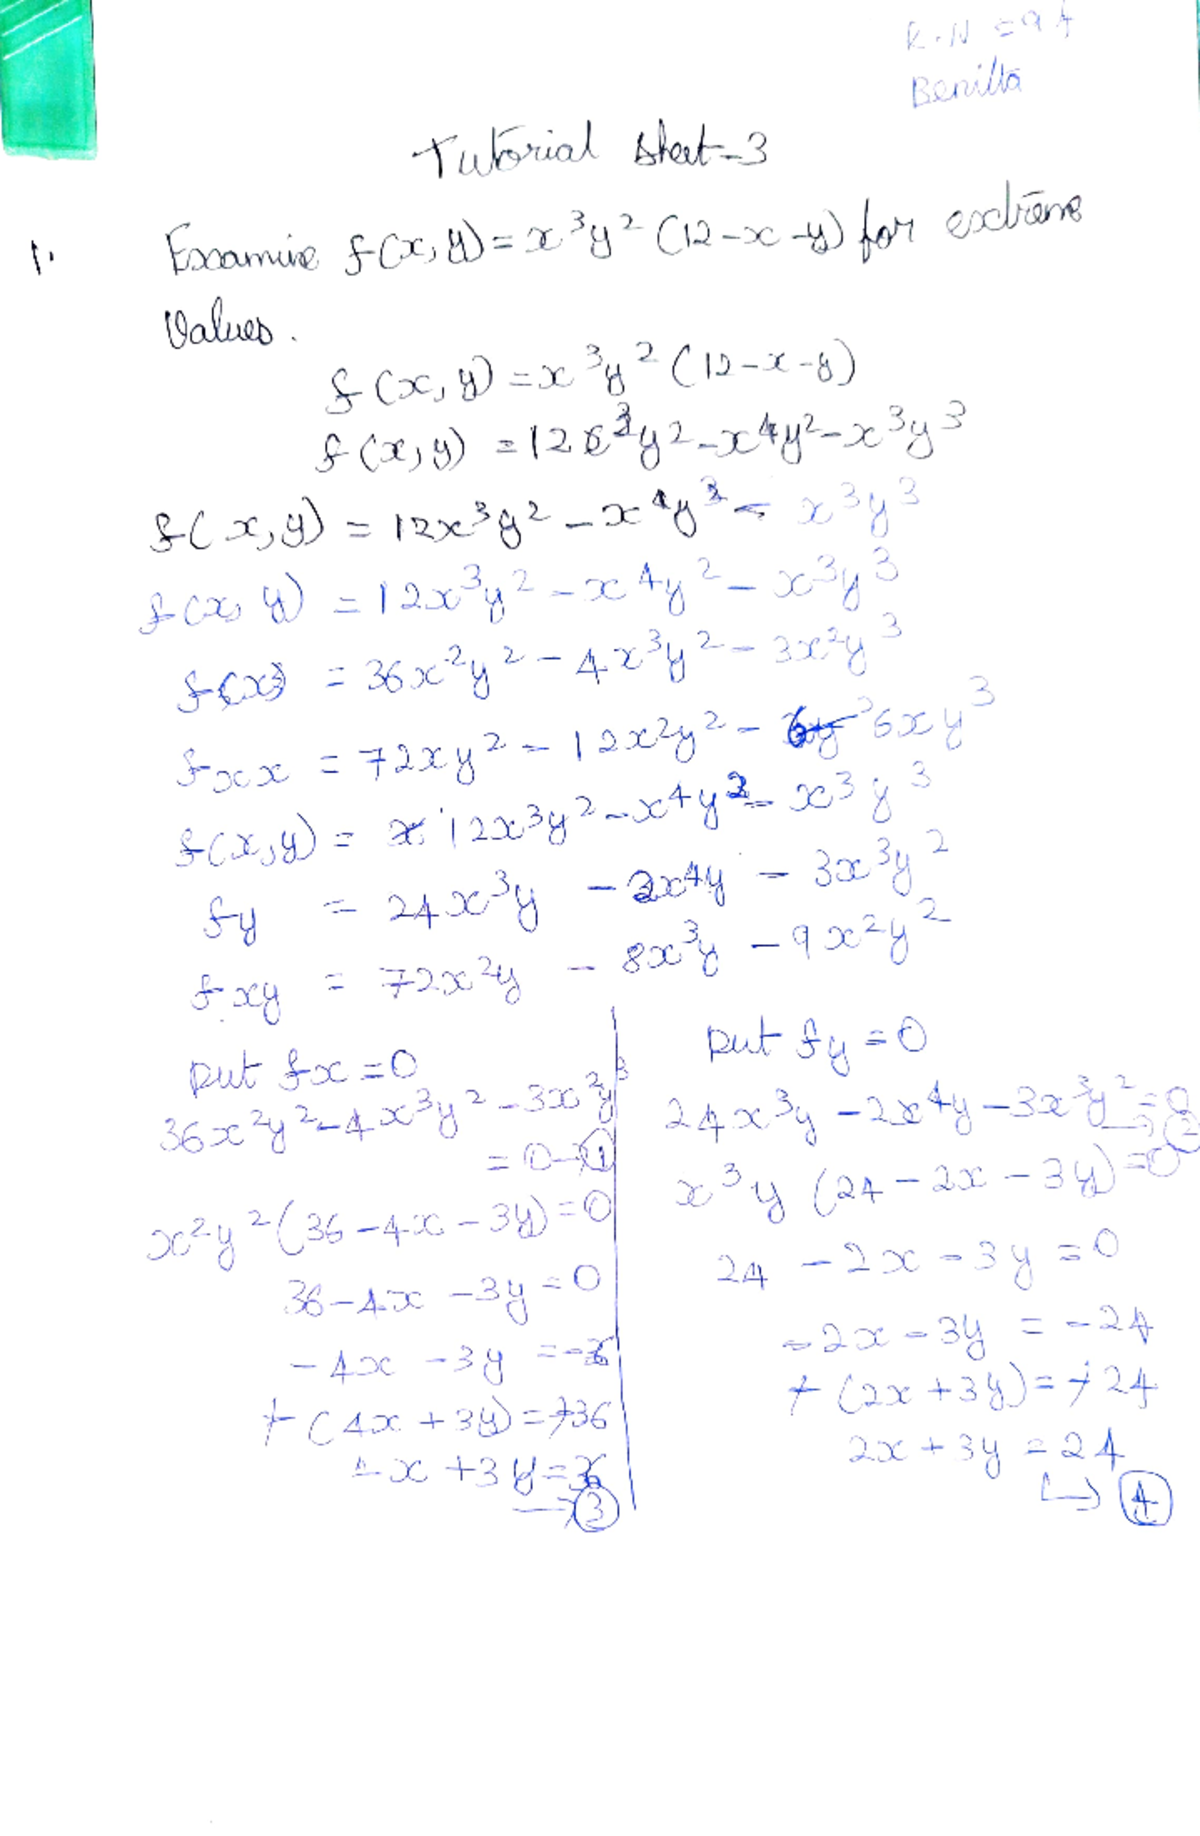 R.N = 94
Benilta
Tutorial sheet-3
1. Examine f(x,y) = x³y² (12-x-y) for extreme
Values.
f(x,y) = x³y² (12-x-y)
f(x,y) = 12x³y² - x⁴y² - x³y³
f(x,y) = 12x³y² - x⁴y² - x³y³
f(x,y) = 12x³y² - x⁴y² - x³y³
f(x) = 36x²y² - 4x³y² - 3x²y³
fxx = 72xy² - 12x²y² - 6xy³
f(x,y) = 12x³y² - x⁴y² - x³y³
fy = 24x³y - 2x⁴y - 3x³y²
fxy = 72x²y - 8x³y - 9x²y²
put fx = 0
36x²y² - 4x³y² - 3x²y³
= 0 → ①
x²y² (36 - 4x - 3y) = 0
36 - 4x - 3y = 0
-4x - 3y = -36
+ (4x + 3y) = +36
4x + 3y = 36
→ ③
put fy = 0
24x³y - 2x⁴y - 3x³y² = 0
→ ②
x³y (24 - 2x - 3y) = 0
24 - 2x - 3y = 0
-2x - 3y = -24
+ (2x + 3y) = +24
2x + 3y = 24
↳ ④